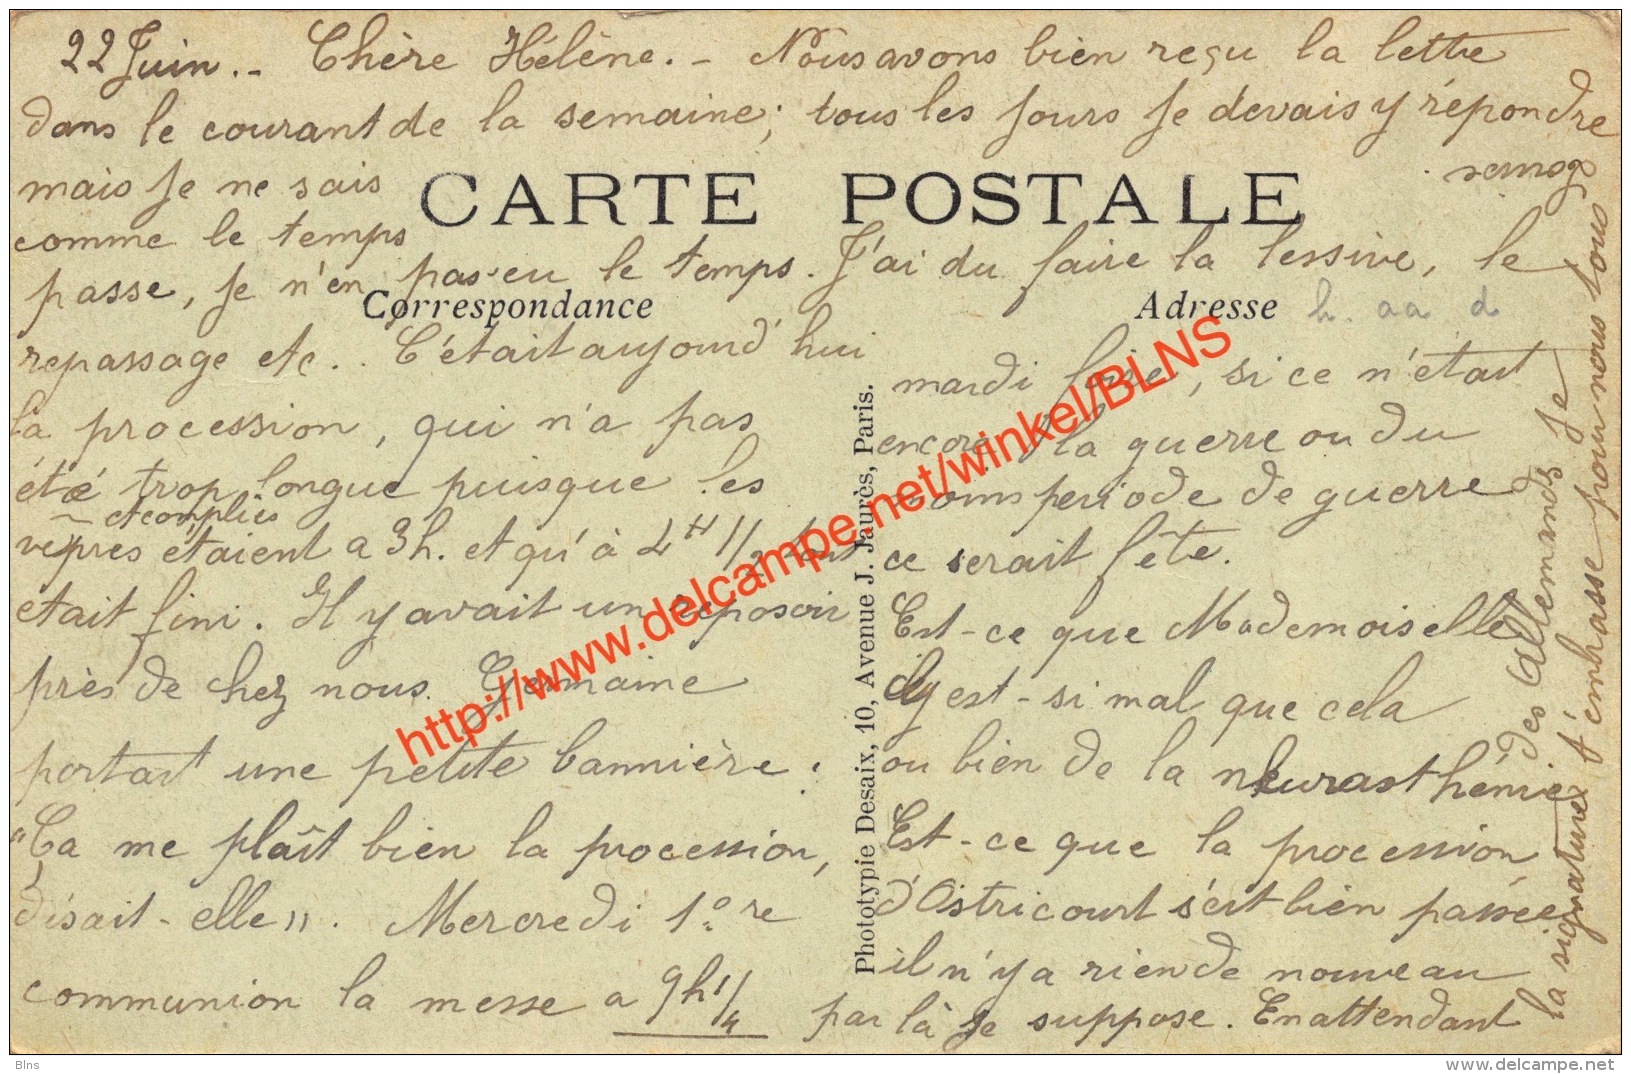 22 Juin.- Chère Hélène.- Nous avons bien reçu la lettre
dans le courant de la semaine; tous les jours je devais y répondre
mais je ne sais
comme le temps
passe, je n'en pas eu le temps. J'ai du faire la lessive, le
repassage etc.. C'était aujourd'hui
la procession, qui n'a pas
été trop longue puisque les
et complies
vepres étaient a 3h. et qu'à 4H 1/2 tout
etait fini. Il y avait un reposoir
près de chez nous. Germaine
portait une petite bannière.
"Ça me plaît bien la procession,
disait-elle". Mercredi 1ere
communion la messe a 9h 1/4
CARTE POSTALE
Correspondance
Adresse
h. aa d
mardi foire, si ce n'était
encore la guerre ou du
moins periode de guerre
ce serait fête.
Est-ce que Mademoiselle
est-si mal que cela
ou bien de la neurasthénie
Est-ce que la procession
d'Ostricourt s'est bien passée
il n'y a rien de nouveau
par là je suppose. En attendant
la signature des Allemands je
t'embrasse pour nous tous
Phototypie Desaix, 10, Avenue J. Jaurès, Paris.
http://www.delcampe.net/winkel/BLNS
Blns
www.delcampe.net